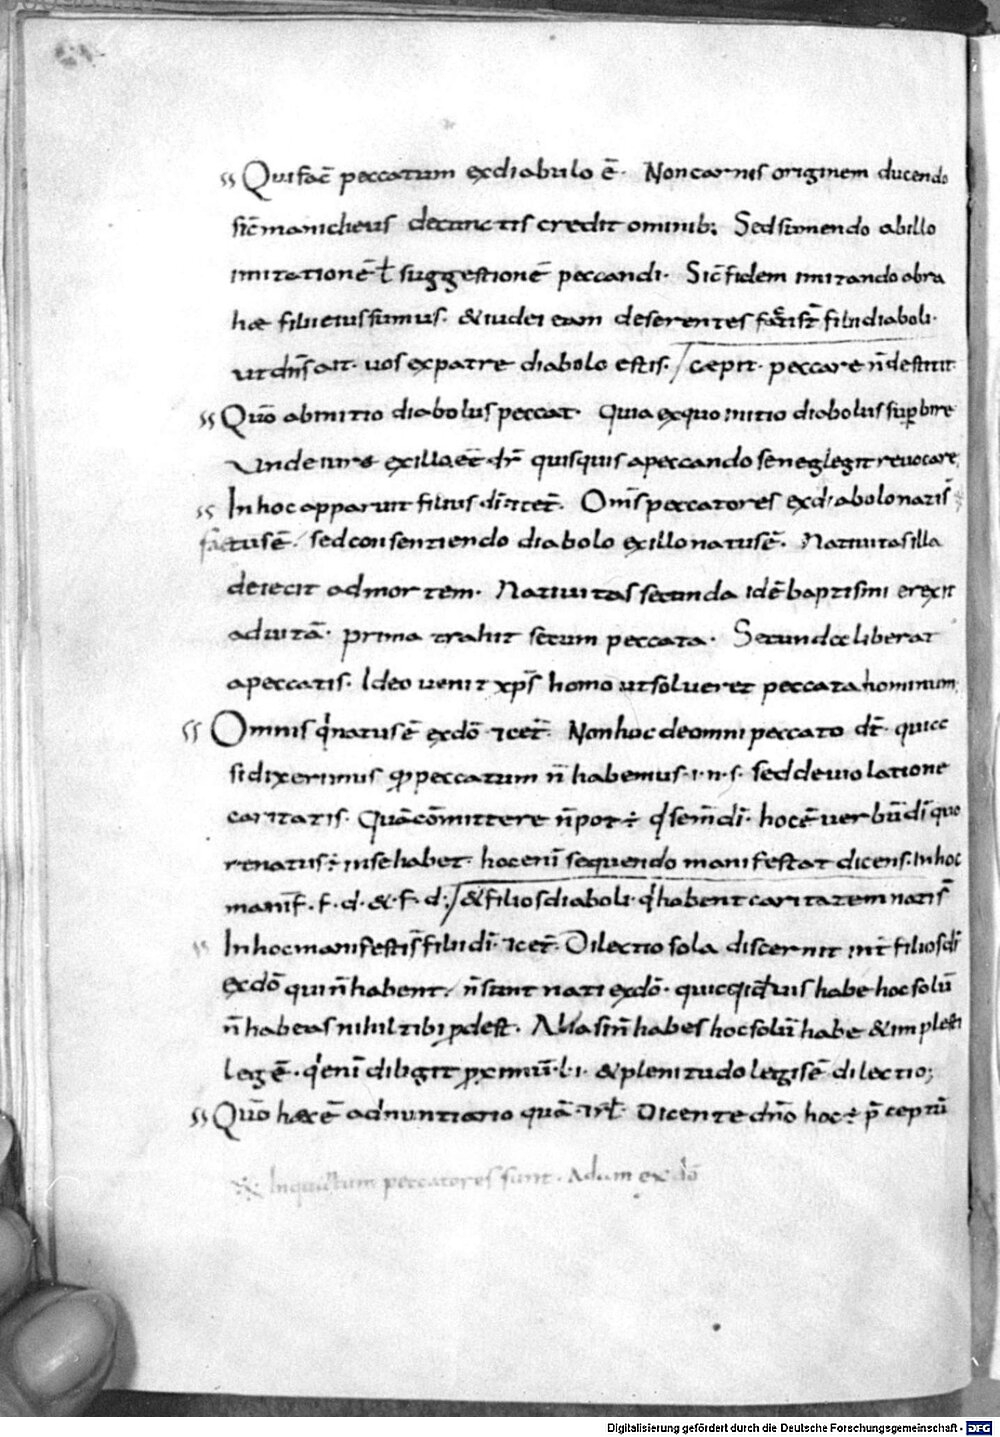 Qui facit̄ peccatum ex diabulo ē. Non carnis originem ducendo
sic̄ manicheus decunctis credit ominib; Sed sumendo abillo
imitationē ł suggestionē peccandi. Sic̄ fidem imitando abra
hae filii eius sumus. & iudei eam deserentes facti st̄ filii diaboli.
ut dn̄s ait. uos expatre diabolo estis. / cepit. peccare n̄ destitit
Quō abinitio diabolus peccat. Quia exquo initio diabolus supbire
Unde iure exilla ec̄ dr̄ quisquis apeccando se neglegit reuocare
In hoc apparuit filius dī ⁊cet̄. Om̄s peccatores exdiabolo nati s̄
factus ē. sed consentiendo diabolo exillo natus ē. Natiuitas illa
deiecit ad mortem. Natiuitas secunda id ē baptismi erexit
ad uitā. prima trahit secum peccata. Secunda liberat
apeccatis. Ideo uenit xp̄s homo ut solueret peccata hominum
Omnis q̄ natus ē exdō ⁊cet̄. Non hoc deomni peccato dt̄. quia
si dixerimus q̄ peccatum n̄ habemus. i. n. s. sed deuiolatione
caritatis. Quā cōmittere n̄ pot ÷ q̄ sem̄ dī. hoc ē uerbū dī quo
renatus ÷ inse habet. hoc enī sequendo manifestat dicens. In hoc
manif̄. f. d. & f. d. / & filios diaboli. q̄ habent caritatem nati s̄
In hoc manifesti s̄ filii dī. ⁊cet̄. Dilectio sola discernit int̄ filios dī
exdō qui n̄ habent. n̄ sunt nati exdō. quicquid uis habe hoc solū
n̄ habeas nihil tibi pdest. Alia si n̄ habes hoc solū habe & implesti
legē. q̄ enī diligit proximū. l. i. & plenitudo legis ē dilectio;
Quō haec ē adnuntiatio quā. ⁊rł. Dicente dnō hoc ÷ p̄ceptū
※ Inquantum peccatores sunt. Adam ex dō
Digitalisierung gefördert durch die Deutsche Forschungsgemeinschaft - DFG